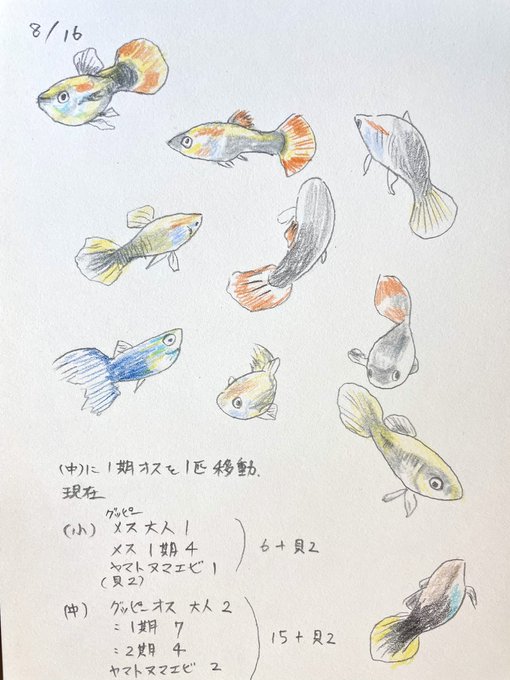 8/16
(中)に1期オスを1匹移動、
現在
グッピー
(小) メス大人1
メス1期4
ヤマトヌマエビ1
(貝2)
6+貝2
(中) グッピーオス 大人2
〃 1期 7
〃 2期 4
ヤマトヌマエビ 2
15+貝2